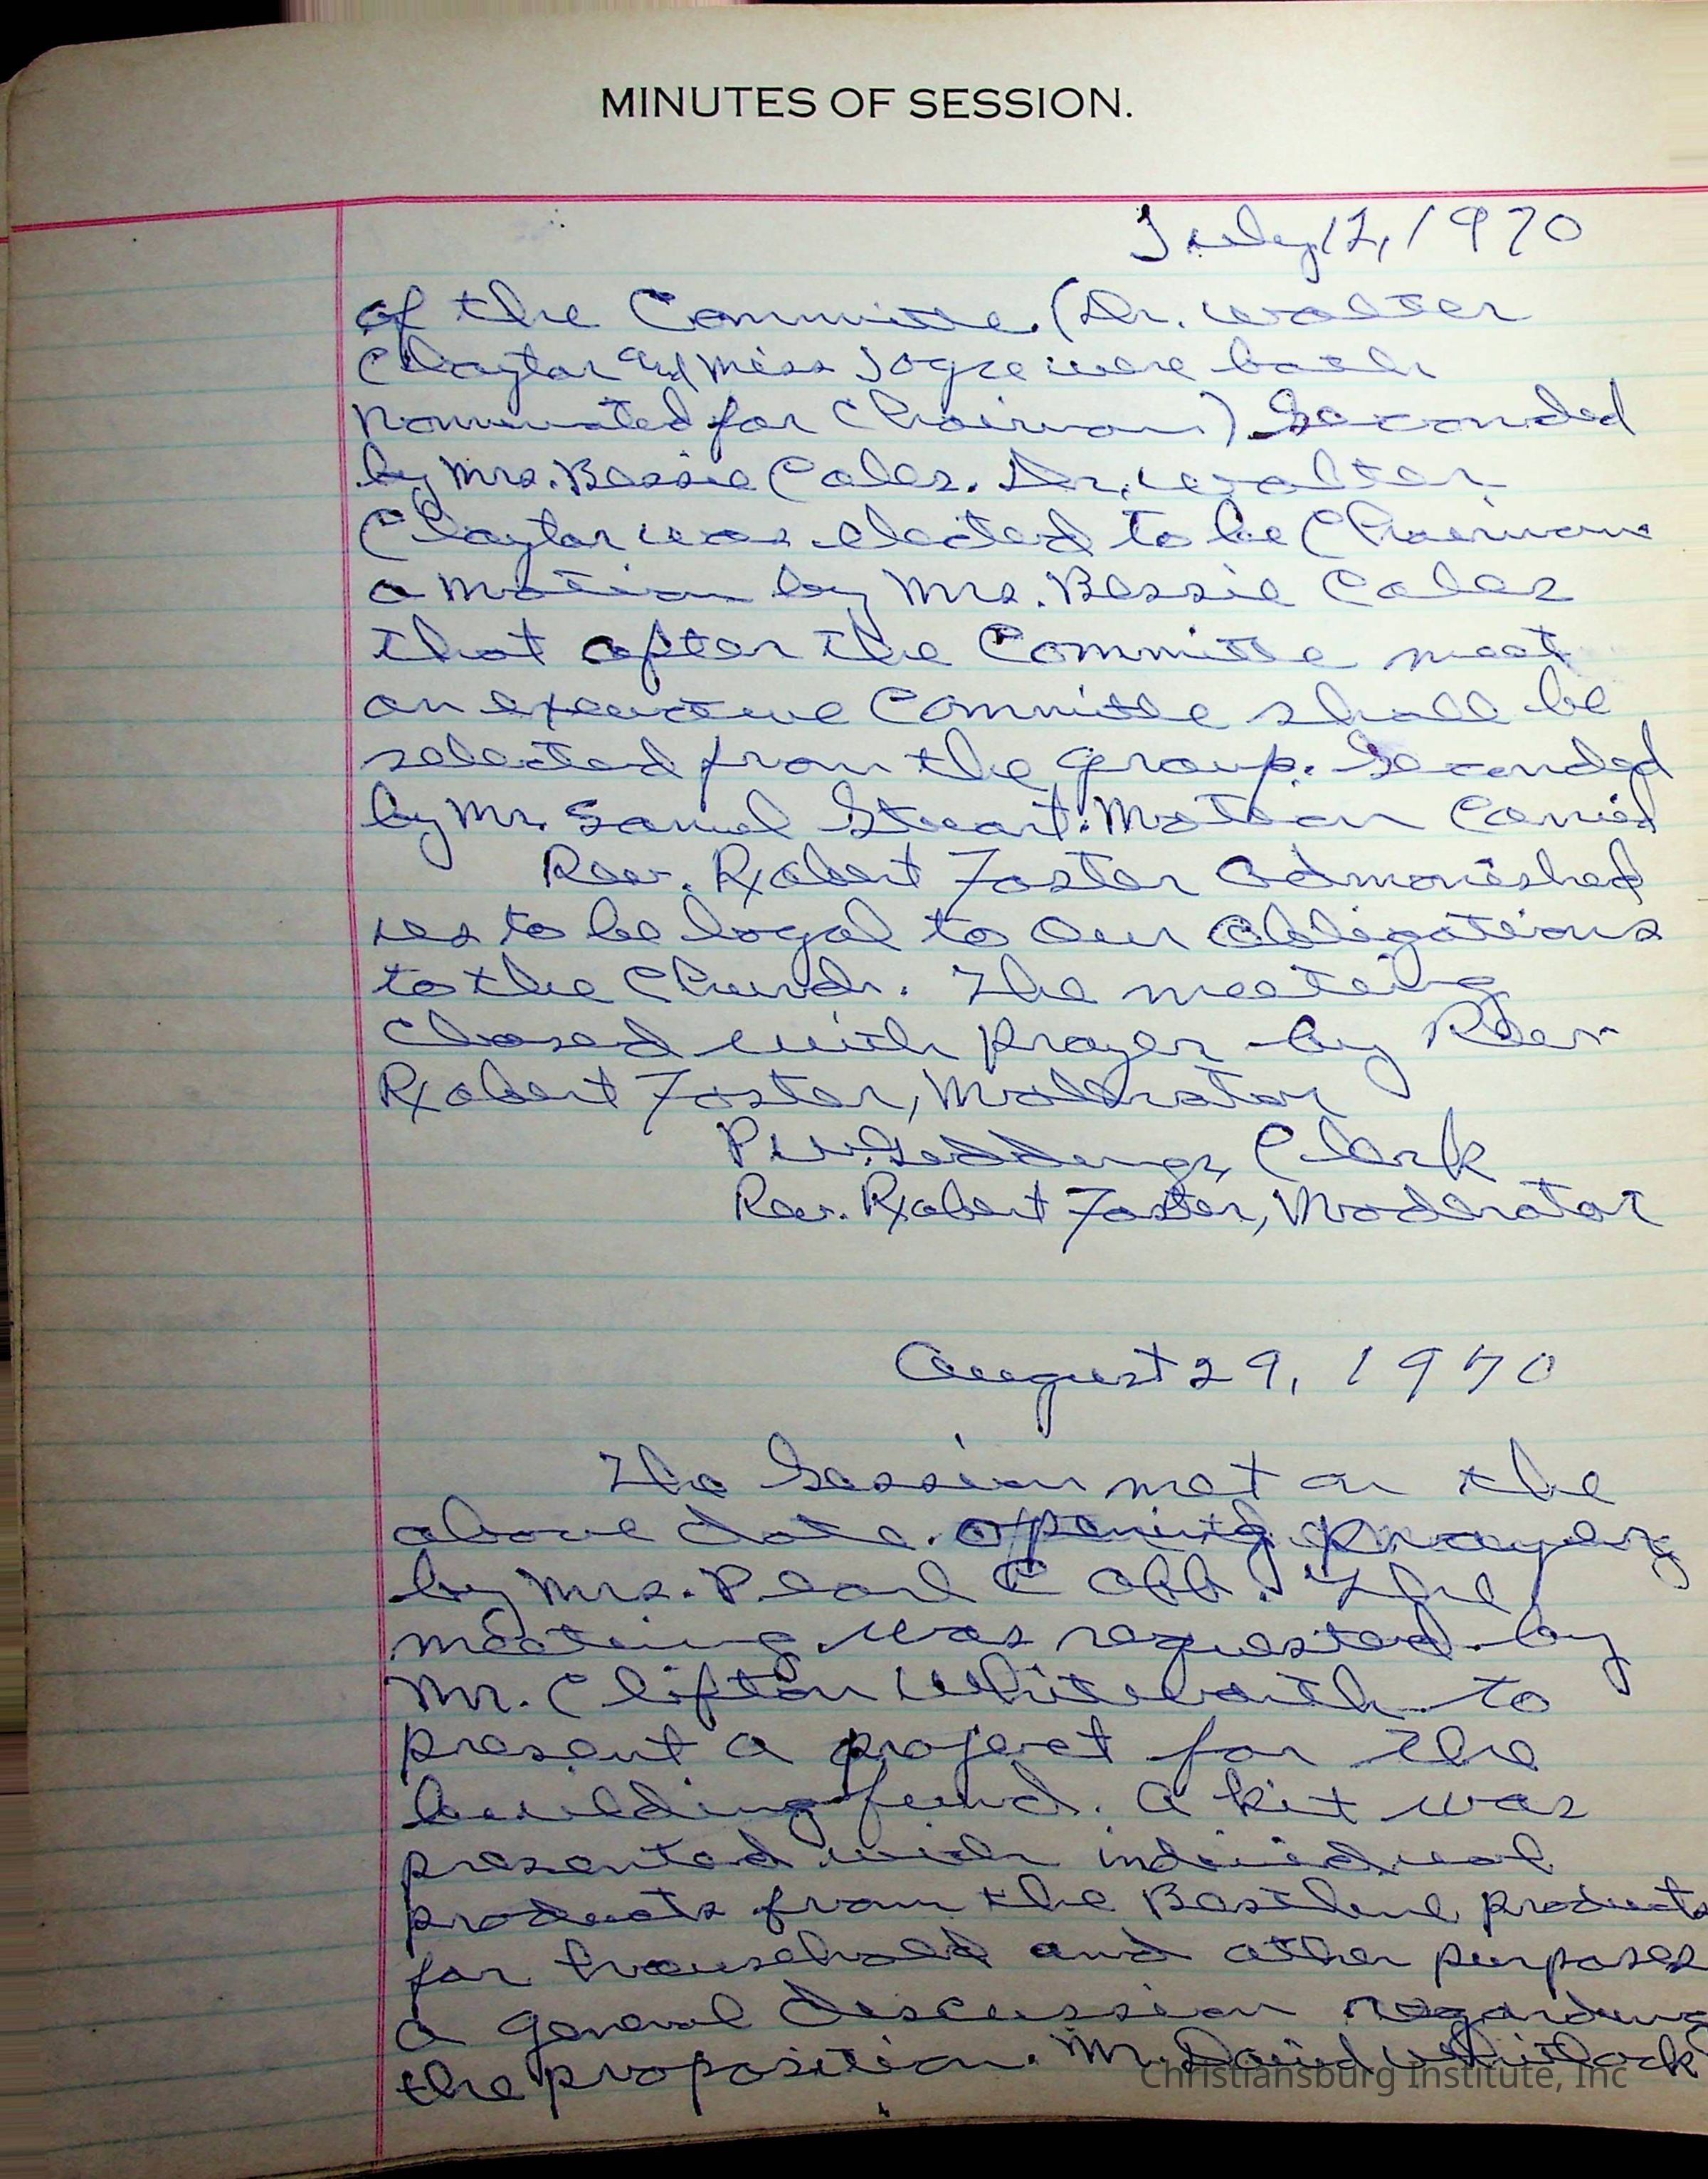 MINUTES OF SESSION.
July 12, 1970
of the Committe. (Dr. Walter
Claytor and Miss Joyce were both
nominated for Chairman) Seconded
by Mrs. Bessie Cales. Dr. Walter
Claytor was elected to be Chairman
a motion by Mrs. Bessie Cales
that after the Committe meet
an executive Committe shall be
selected from the group. Seconded
by Mr. Samuel Stuart. Motion Carried
Rev. Robert Foster admonished
us to be loyal to our obligations
to the Church. The meeting
closed with prayer by Rev
Robert Foster, Moderator
P.W. Geddings, Clerk
Rev. Robert Foster, Moderator
August 29, 1970
The Session met on the
above date. opening prayer
by Mrs. Pearl Cobb. The
meeting was requested by
Mr. Clifton Whiteworth to
present a project for the
building fund. A kit was
presented with individual
products from the Bestline products
for household and other purposes
a general discussion regarding
the proposition. Mr. David Whitlock
Christiansburg Institute, Inc